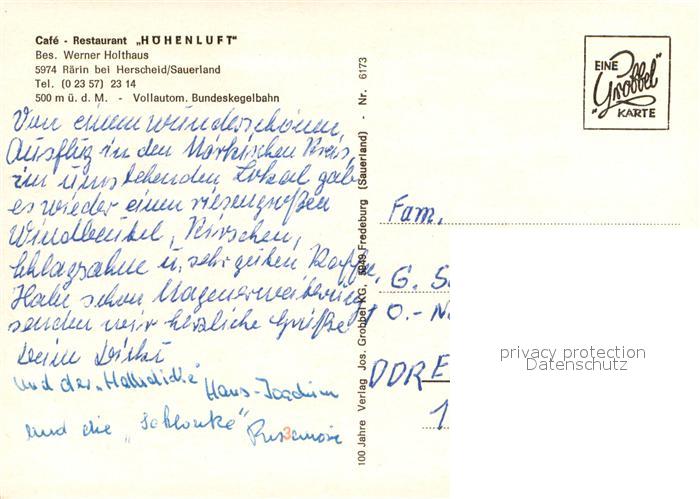 Café - Restaurant „HÖHENLUFT"
Bes. Werner Holthaus
5974 Rärin bei Herscheid/Sauerland
Tel. (0 23 57) 23 14
500 m ü. d. M. - Vollautom. Bundeskegelbahn
Von einem wunderschönen
Ausflug in den Märkischen Kreis
im umstehenden Lokal gab
es wieder einen riesengroßen
Windbeutel, Kirschen,
Schlagsahne u. sehr guten Kaffee,
Habe schon Magenerweiterung
senden wir herzliche Grüße
Deine
und der „Halbdicke" Hans-Joachim
und die „Schlanke" Rosemarie
100 Jahre Verlag Jos. Grobbel KG, 5949 Fredeburg (Sauerland) - Nr. 6173
EINE
„Grobbel"
KARTE
Fam.
G. S
O.-N
DDR E
1
privacy protection
Datenschutz